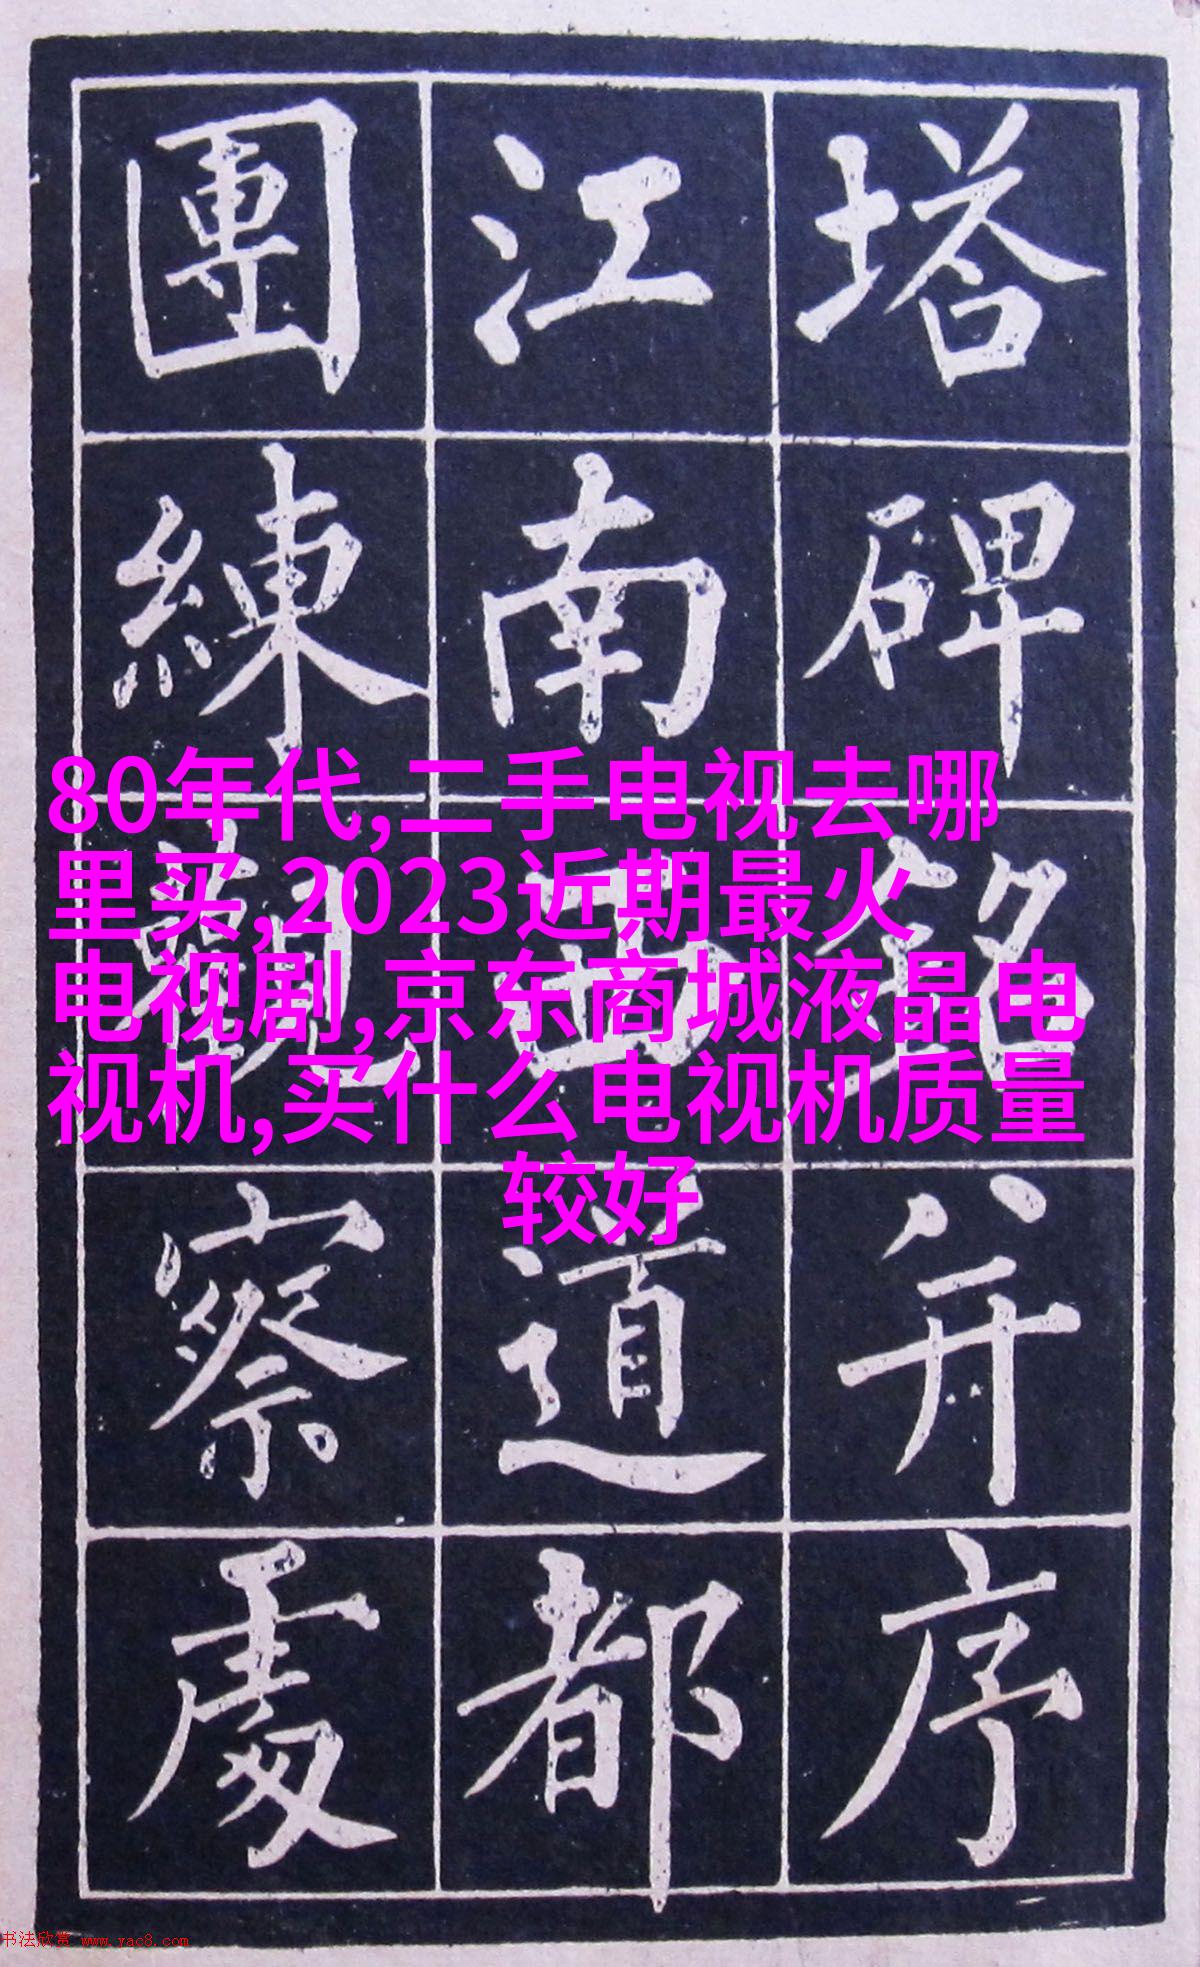 塔碑銘并序
江南西道都
團練觀察處
80年代,二手电视去哪
里买,2023近期最火
电视剧,京东商城液晶电
视机,买什么电视机质量
较好
书法欣赏 www.yac8.com